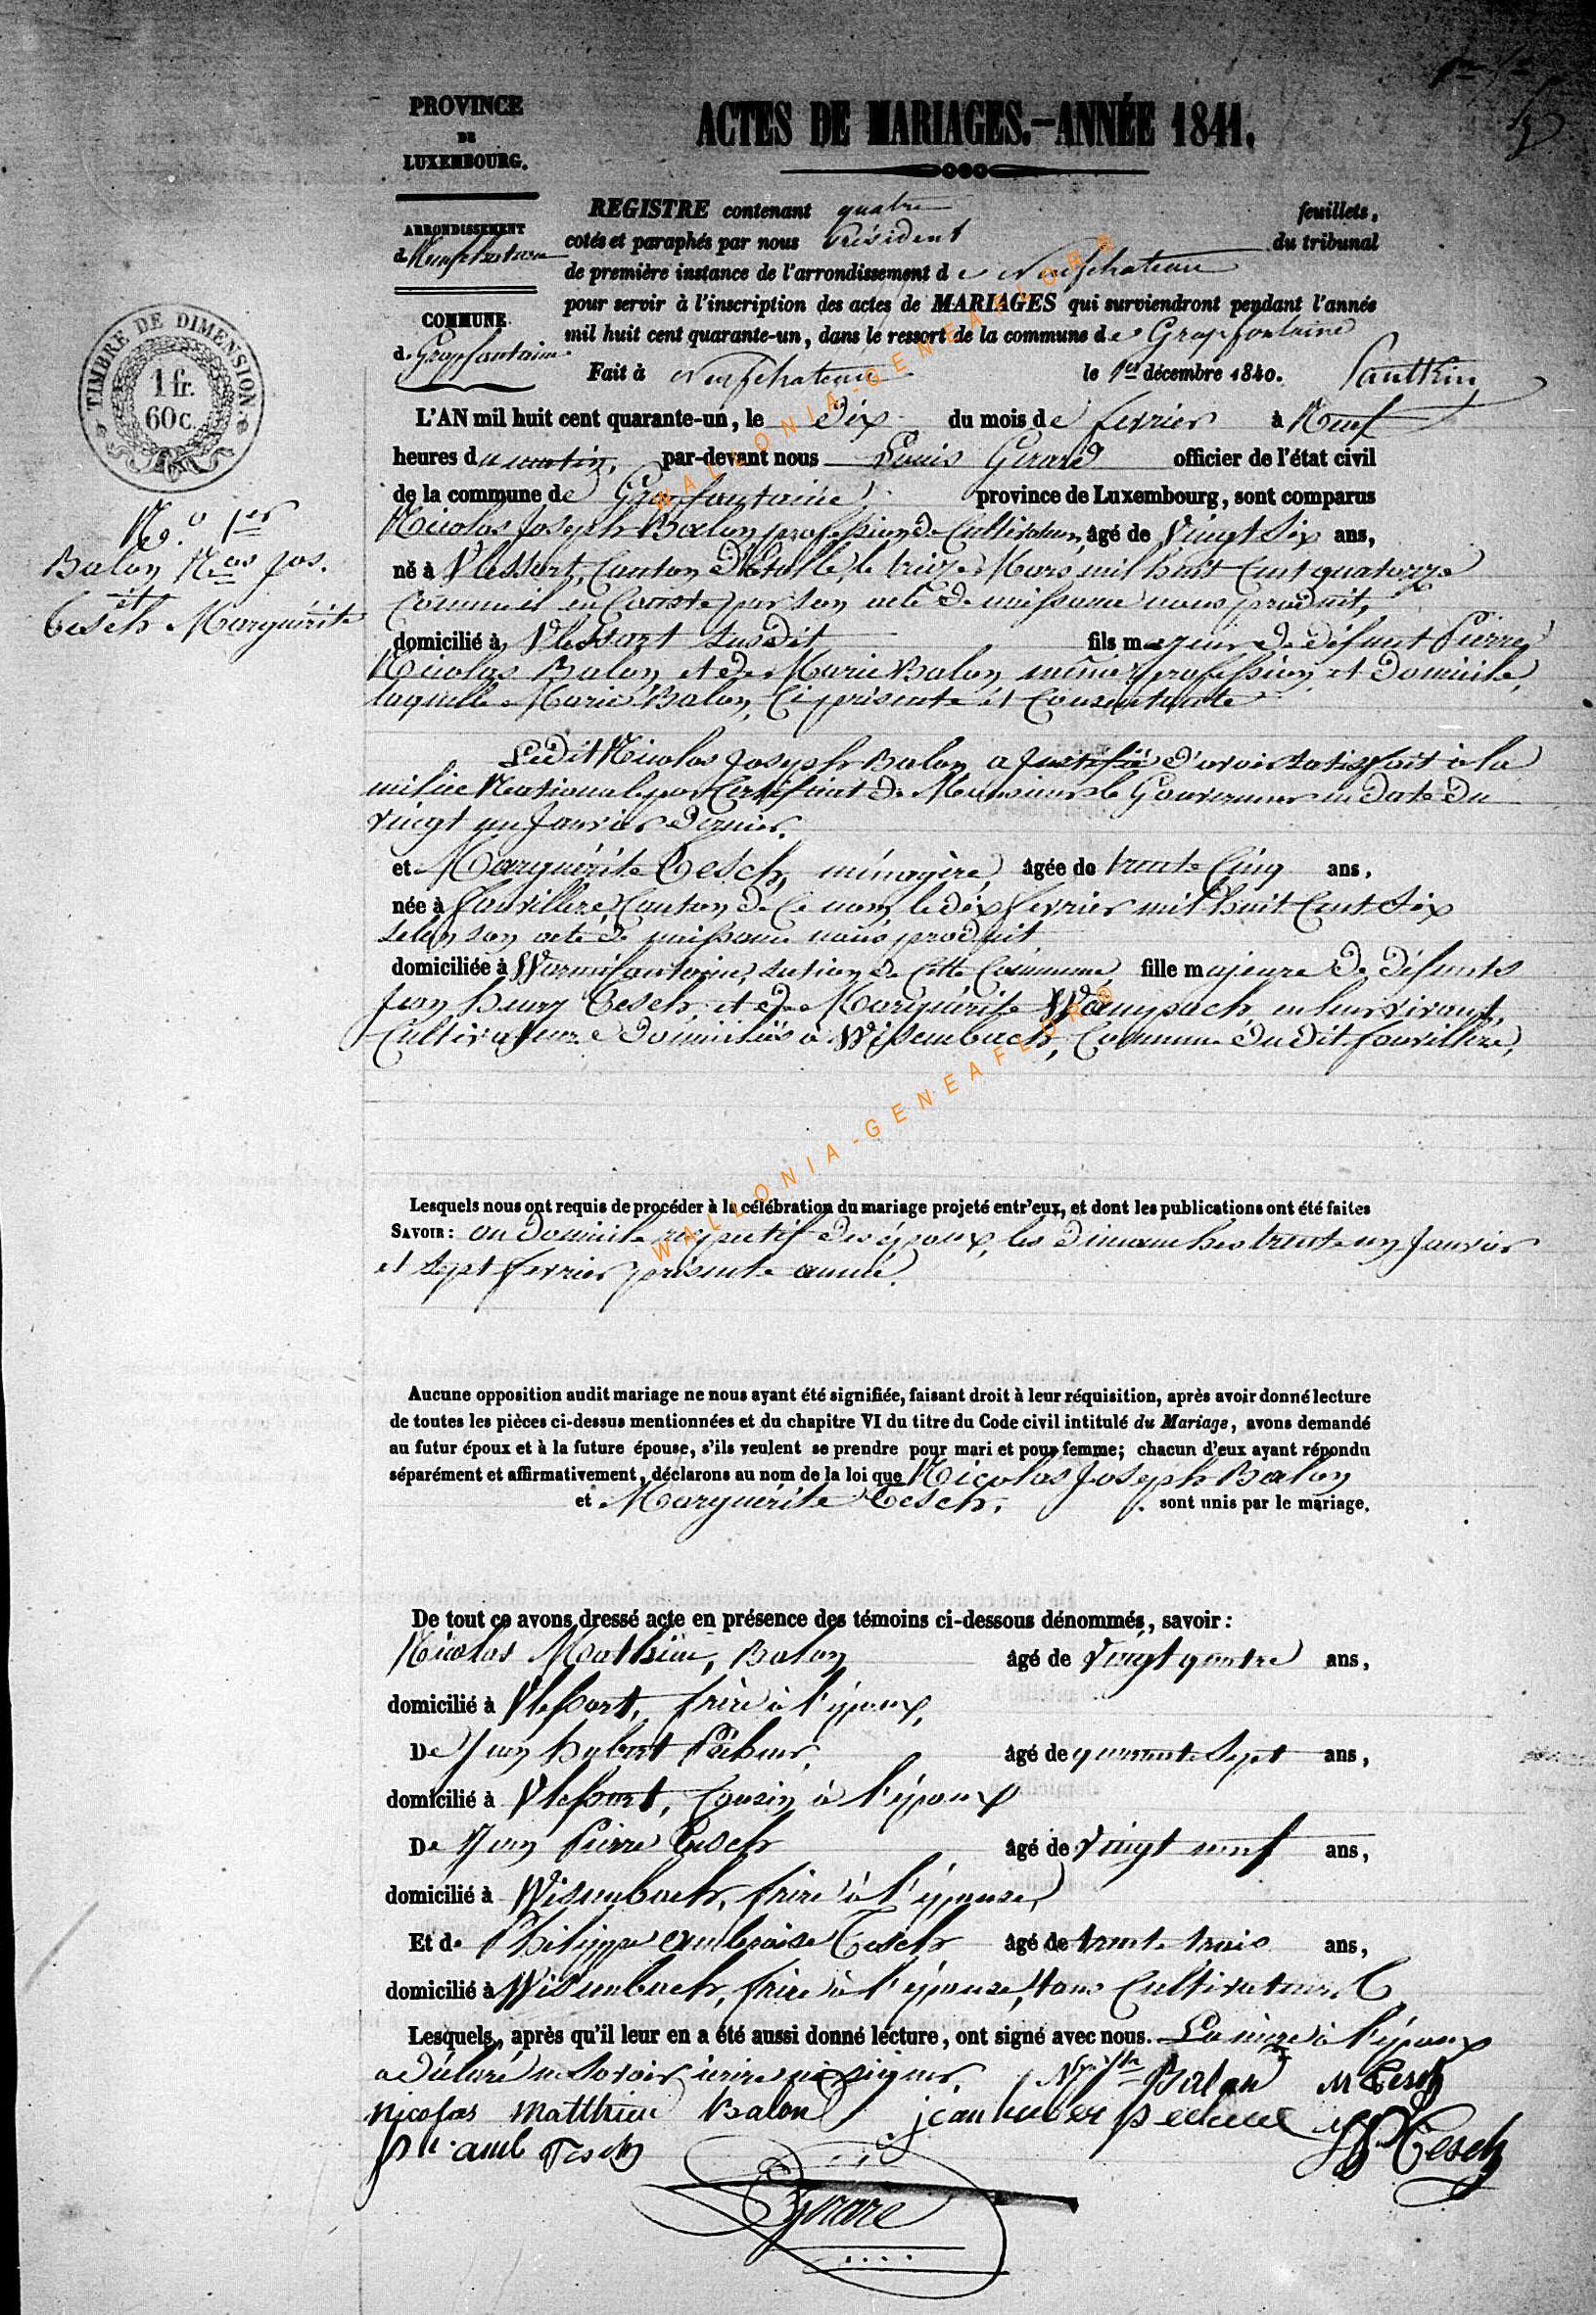 PROVINCE
DE
LUXEMBOURG.
ACTES DE MARIAGES.—ANNÉE 1841.
ARRONDISSEMENT
de Neufchateau
COMMUNE
de Grapfontaine
REGISTRE contenant quatre feuillets,
cotés et paraphés par nous Président du tribunal
de première instance de l'arrondissement de Neufchateau
pour servir à l'inscription des actes de MARIAGES qui surviendront pendant l'année
mil huit cent quarante-un, dans le ressort de la commune de Grapfontaine
Fait à Neufchateau le 1er décembre 1840.
TIMBRE DE DIMENSION
1 fr.
60 c.
L'AN mil huit cent quarante-un, le dix du mois de fevrier à Neuf
heures du matin, par-devant nous Louis Gerard officier de l'état civil
de la commune de Grapfontaine province de Luxembourg, sont comparus
N.o 1er
Balon N.as Jos.
et
Tesch Marguérite
Nicolas Joseph Balon profession de Cultivateur, âgé de Vingt Six ans,
né à Vlessart, Canton d'Etalle, le treize Mars mil huit Cent quatorze
Comme il en Conste par son acte de naissance nous produit,
domicilié à Vlessart susdit fils majeur de défunt Pierre
Nicolas Balon et de Marie Balon même profession et domicile,
laquelle Marie Balon, Ci présente et Consentante
Ledit Nicolas Joseph Balon a justifié d'avoir satisfait à la
milice Nationale par Certificat de Monsieur le Gouverneur en date du
vingt un Janvier dernier.
et Marguérite Tesch, ménagère, âgée de trente Cinq ans,
née à fauvillere, Canton de Ce nom, le dix fevrier mil huit Cent Six
selon son acte de naissance nous produit,
domiciliée à Warmifontaine, section de Cette Commune fille majeure de défunts
Jean henry Tesch, et de Marguérite Wampach, en leur vivant,
Cultivateurs domiciliés à Wisembach, Commune du dit fauvillere,
Lesquels nous ont requis de procéder à la célébration du mariage projeté entr'eux, et dont les publications ont été faites
SAVOIR: au domicile respectif des époux, les dimanches trente un Janvier
et sept fevrier présente année.
Aucune opposition audit mariage ne nous ayant été signifiée, faisant droit à leur réquisition, après avoir donné lecture
de toutes les pièces ci-dessus mentionnées et du chapitre VI du titre du Code civil intitulé du Mariage, avons demandé
au futur époux et à la future épouse, s'ils veulent se prendre pour mari et pour femme; chacun d'eux ayant répondu
séparément et affirmativement, déclarons au nom de la loi que Nicolas Joseph Balon
et Marguérite Tesch, sont unis par le mariage.
De tout ce avons dressé acte en présence des témoins ci-dessous dénommés, savoir:
Nicolas Mathieu, Balon âgé de Vingt quatre ans,
domicilié à Vlessart, frère à l'époux,
De Jean hubert Pécheur, âgé de quarante Sept ans,
domicilié à Vlessart, Cousin à l'époux
De Jean Pierre Tesch âgé de Vingt neuf ans,
domicilié à Wisembach, frère à l'épouse,
Et de Philippe ambroise Tesch âgé de trente trois ans,
domicilié à Wisembach, frère à l'épouse, tous Cultivateurs
Lesquels, après qu'il leur en a été aussi donné lecture, ont signé avec nous. La mère à l'époux
a déclaré ne savoir écrire ni signer.
Balon M Tesch
nicolas matthieu Balon jean hubert pecheur JP Tesch
ph. amb Tesch
Gerard
WALLONIA-GENEAFLOR®
WALLONIA-GENEAFLOR®